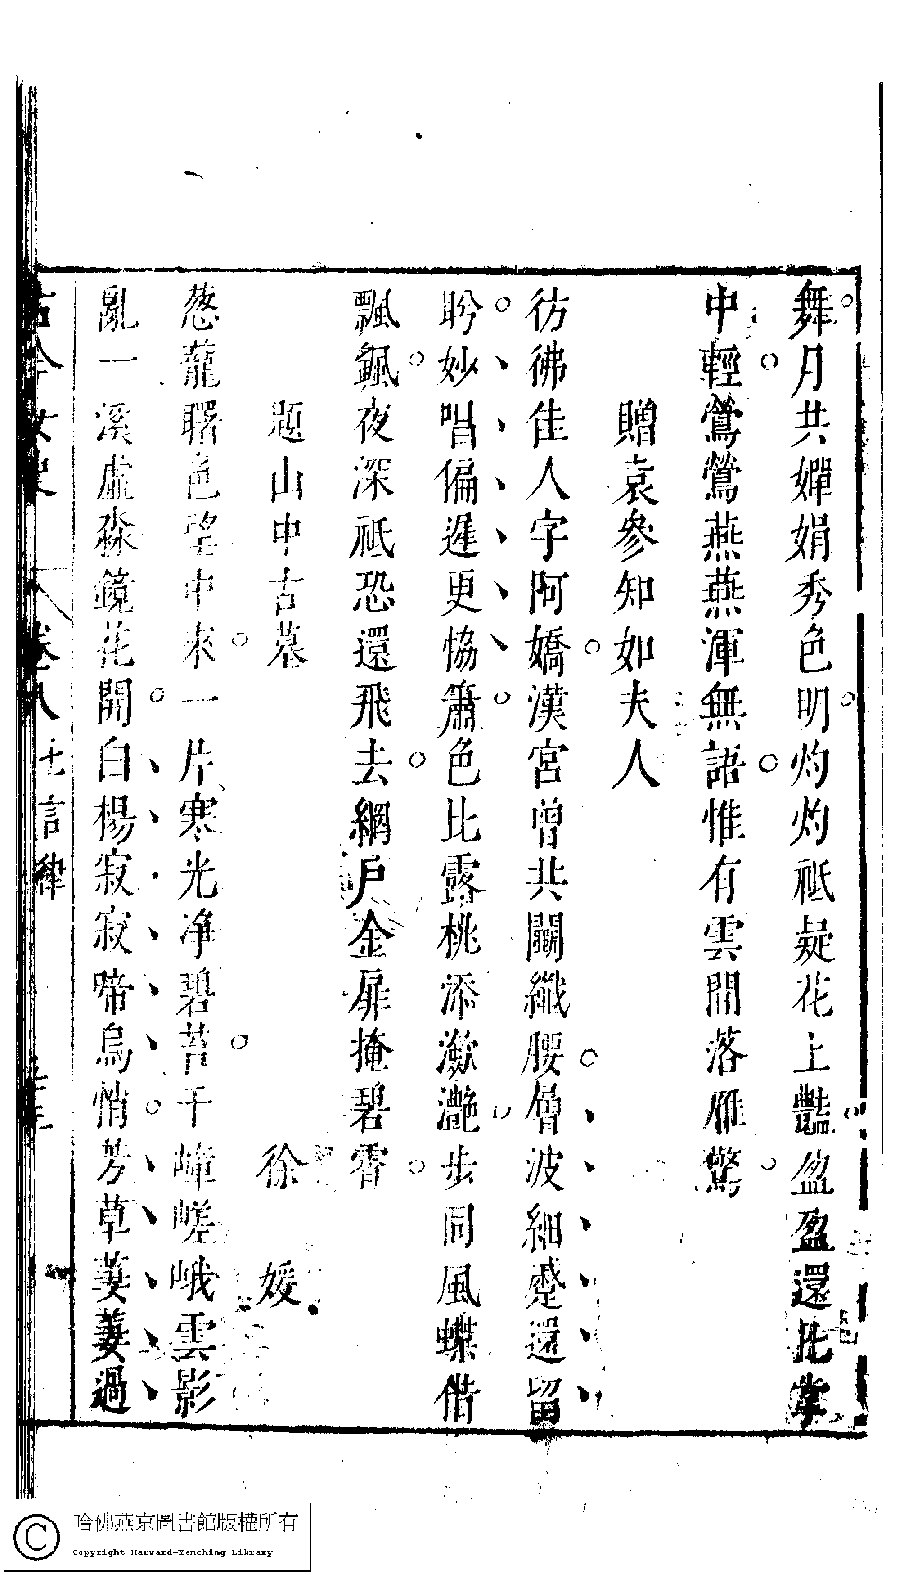 舞月共嬋娟秀色明灼灼祗疑花上豔盈盈還托掌
中輕鶯鶯燕燕渾無語惟有雲間落雁驚
贈袁參知如夫人
彷彿佳人字阿嬌漢宮曾共鬭纖腰層波細蹙還留
盼妙唱偏遲更恊簫色比露桃添瀲灔步同風蝶借
飄颻夜深祗恐還飛去網戶金扉掩碧霄
題山中古墓
徐媛
葱蘢曙色望中來一片寒光净碧苔千嶂嵯峨雲影
亂一溪虛淼鏡花開白楊寂寂啼烏悄芳草萋萋過
古今女史 卷八 七言律
哈佛燕京圖書館版權所有
Copyright Harvard-Yenching Library